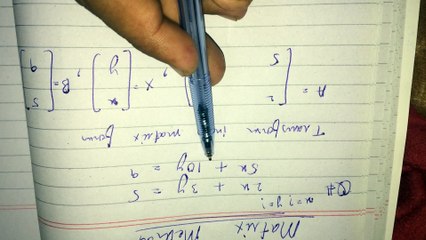 Matrix Method
x=? y=?
Q#
2x + 3y = 5
5x + 10y = 9
Transform in matrix form
A = [2 5], X = [x y], B = [5 9]